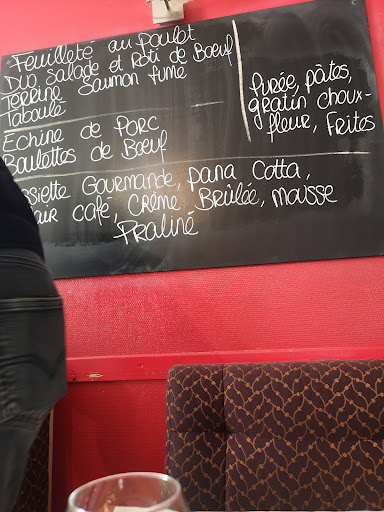 Feuilleté au Poulet
Duo Salade et Rôti de Boeuf
Terrine Saumon fumé
Taboulé
Echine de Porc
Boulettes de Boeuf
purée, pâtes,
gratin choux-
fleur, Frites
ssiette Gourmande, pana Cotta,
air café, Crème Brûlée, mousse
Praliné